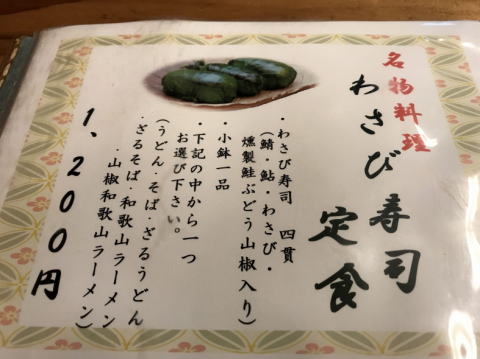 名物料理
わさび寿司
定食
・わさび寿司 四貫
(鯖・鮎・わさび・
燻製鮭ぶどう山椒入り)
・小鉢一品
・下記の中から一つ
お選び下さい。
(うどん・そば・ざるうどん
・ざるそば・和歌山ラーメン
・山椒和歌山ラーメン)
1、200円